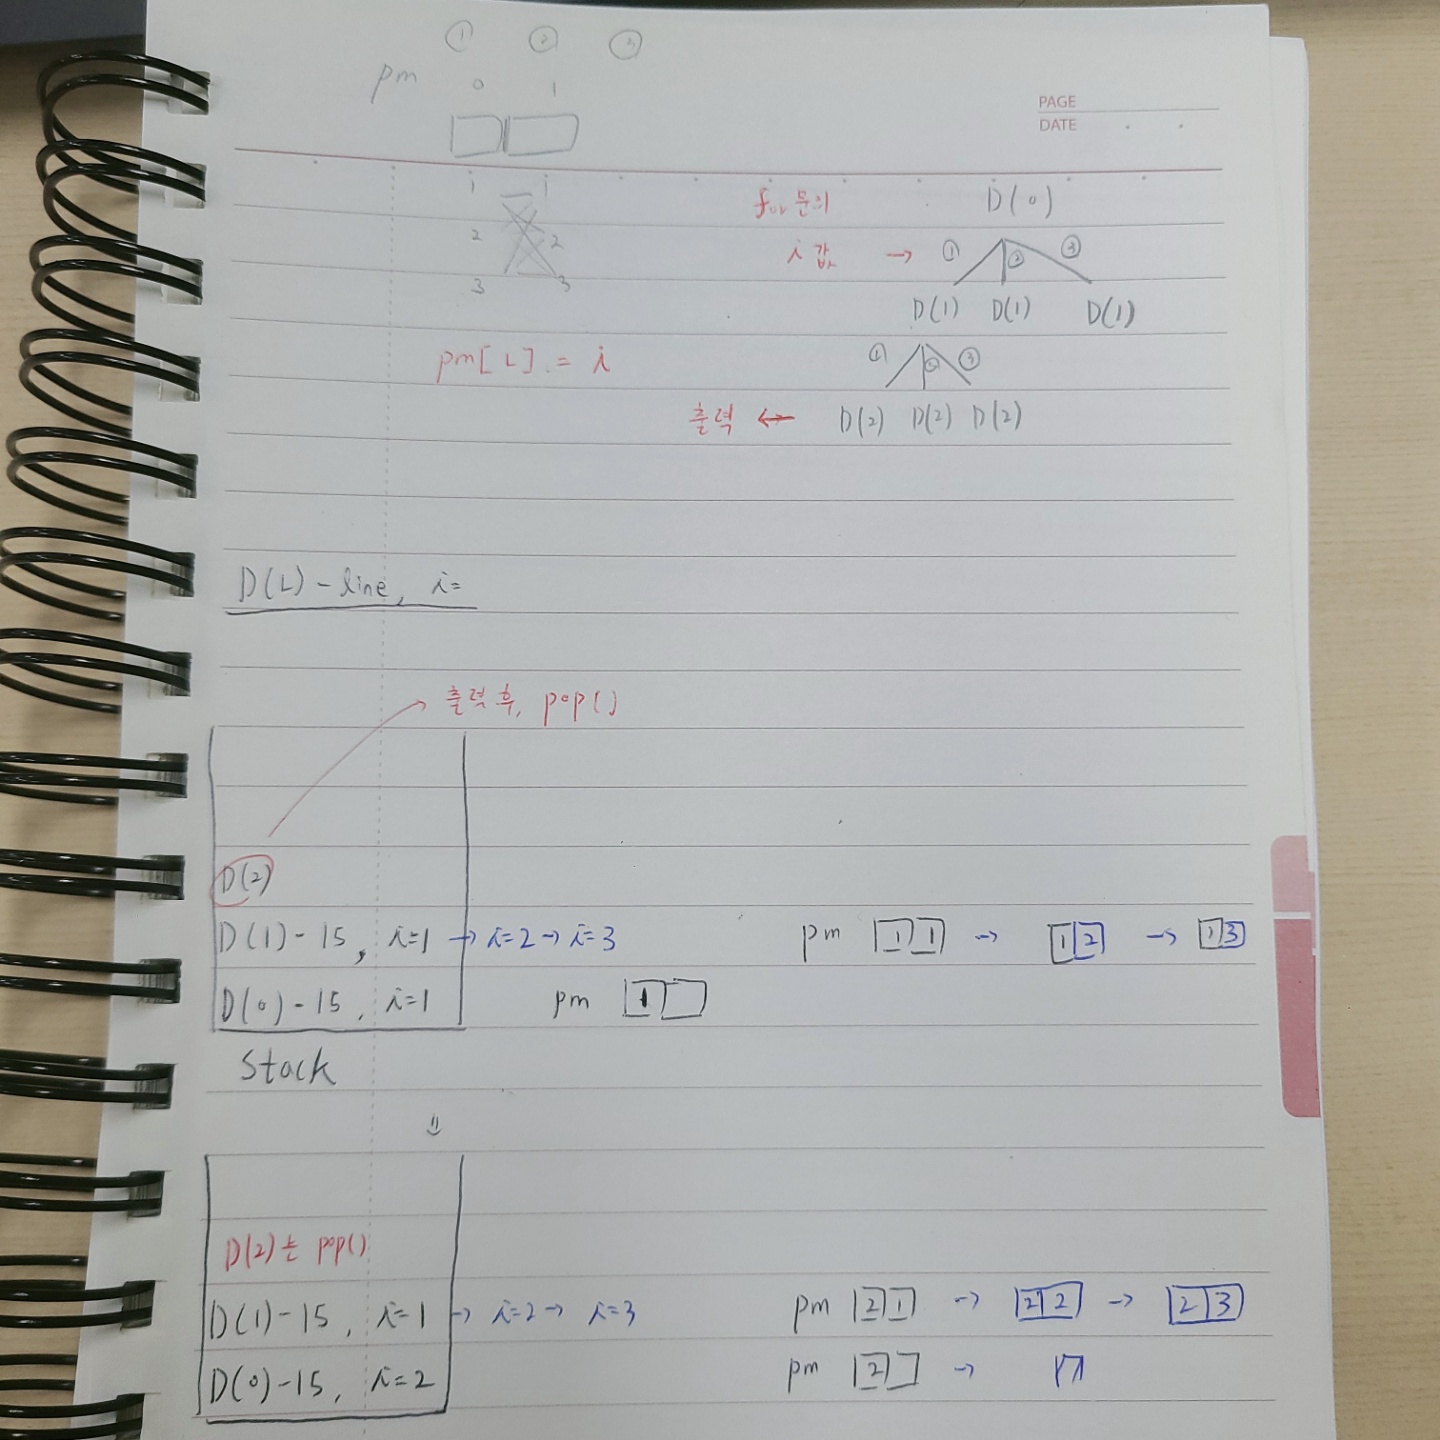 ① ② ③
pm 0 1
PAGE
DATE
1 1
for문의 D(0)
2 2
i 값 → ① ② ③
3 3
D(1) D(1) D(1)
pm[L] = i ① ② ③
출력 ← D(2) D(2) D(2)
D(L)-line, i=
출력 후, pop()
D(2)
D(1)-15, i=1 → i=2 → i=3 pm 1 1 → 1 2 → 1 3
D(0)-15, i=1 pm 1
Stack
D(2)는 pop()
D(1)-15, i=1 → i=2 → i=3 pm 2 1 → 2 2 → 2 3
D(0)-15, i=2 pm 2 →